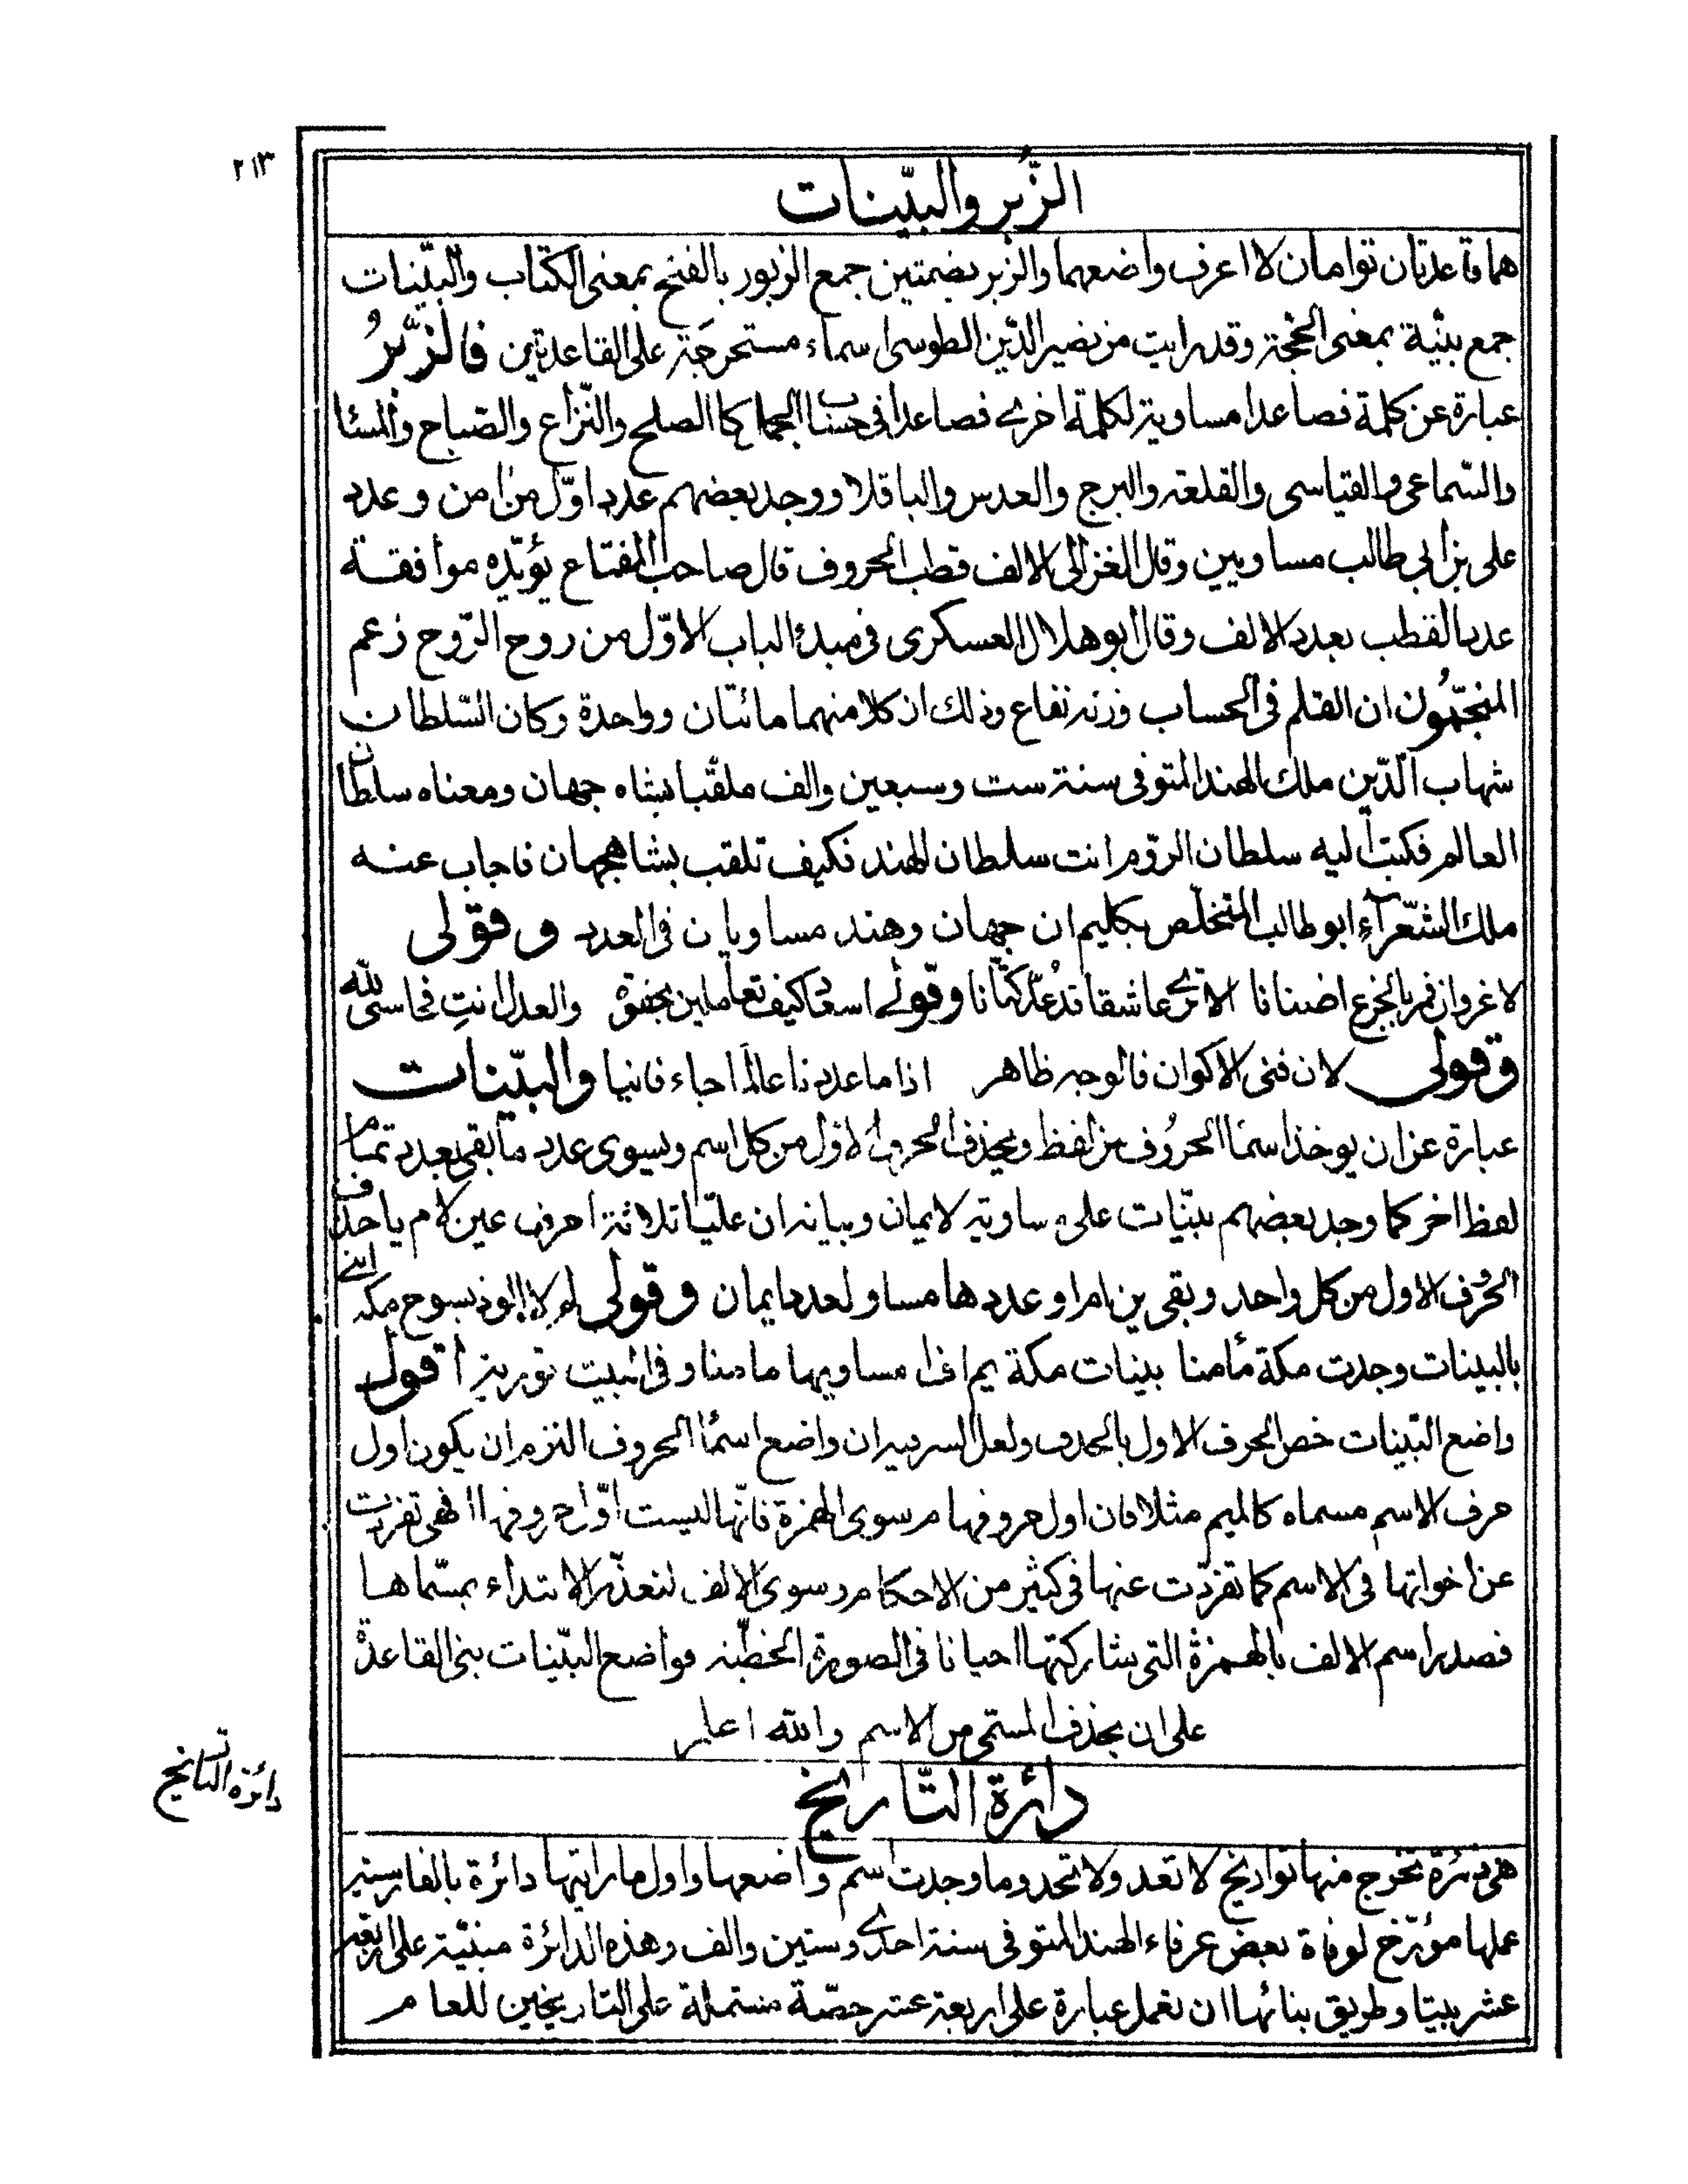 ٢١٣
الزُّبر والبيّنات
هما قاعدتان توامان لا اعرف واضعهما والزبر بضمتين جمع الزبور بالفتح بمعنى الكتاب والبيّنات
جمع بيّنة بمعنى الحجّة وقد رايت من نصير الدّين الطوسى اسماء مستخرجة على القاعدتين فالزُّبرُ
عبارة عن كلمة فصاعدا مساوية لكلمة اخرى فصاعدا فى حساب الجمل كالصلح والنّزاع والصّباح والمسا
والسّماعى والقياسى والقلعة والبرج والعدس والباقلا ووجد بعضهم عدد اوّل من امن وعدد
على بن ابى طالب مساويين وقال الغزالى الالف قطب الحروف قال صاحب المفتاح يؤيّده موافقة
عدد القطب بعدد الالف وقال ابو هلال العسكرى فى مبدئ الباب الاوّل من روح الرّوح زعم
المنجّمُون ان القلم فى الحساب وزنه نفاع وذلك ان كلا منهما مائتان وواحدة وكان السّلطان
شهاب الدّين ملك الهند المتوفى سنة ست وسبعين والف ملقّبا بشاه جهان ومعناه سلطان
العالم فكتب اليه سلطان الرّوم انت سلطان الهند فكيف تلقب بشاهجهان فاجاب عنه
ملك الشّعرآء ابو طالب المتخلّص بكليم ان جهان وهند مساويان فى العدد وقولى
لا غرو ان فر بالجزع اضنانا الا ترى عاشقا قد عدّ كتّانا وقولى اسعاد كيف تعاملين بجفوة والعدل انتِ فحاسبى لله
وقولى لان فنى الاكوان فالوجه ظاهر اذا ما عددنا عالما جاء فانيا والبيّنات
عبارة عن ان يوخذ اسما الحروف من لفظ ويحذف الحرف الاول من كل اسم ويسوى عدد ما بقى بعدد تمام
لفظ اخر كما وجد بعضهم بيّنات على مساوية لايمان وبيانه ان عليّا ثلاثة احرف عين لام يا حذف
الحرف الاول من كل واحد وبقى ين ام ا وعددها مساو لعدد ايمان وقولى لم لا الوذ بسوح مكة اننى
بالبينات وجدت مكة مأمنا بينات مكة يم اف ا مساويها مامنا وفى البيت توريز اقول
واضع البيّنات خص الحرف الاول بالحذف ولعل السر فيه ان واضع اسما الحروف التزم ان يكون اول
حرف الاسم مسماه كالميم مثلا فان اول حروفها م سوى الهمزة فانّها ليست اوّل حروفها ا فهى تفردت
عن اخواتها فى الاسم كما تفرّدت عنها فى كثير من الاحكام وسوى الالف لتعذّر الابتداء بمسمّاها
فصدر اسم الالف بالهمزة التى شاركتها احيانا فى الصورة الخطّية فواضع البيّنات بنى القاعدة
على ان يحذف المسمى من الاسم والله اعلم
دائرة التاريخ
دائرة التّاريخ
هى دائرة تخرج منها تواريخ لا تعد ولا تحد وما وجدت اسم واضعها واول ما رايتها دائرة بالفارسية
عملها مؤرّخ لوفاة بعض عرفاء الهند المتوفى سنة احدى وستين والف وهذه الدائرة مبنيّة على اربعة
عشر بيتا وطريق بنائها ان تعمل عبارة على اربعة عشر حصّة مشتملة على التاريخين للعام